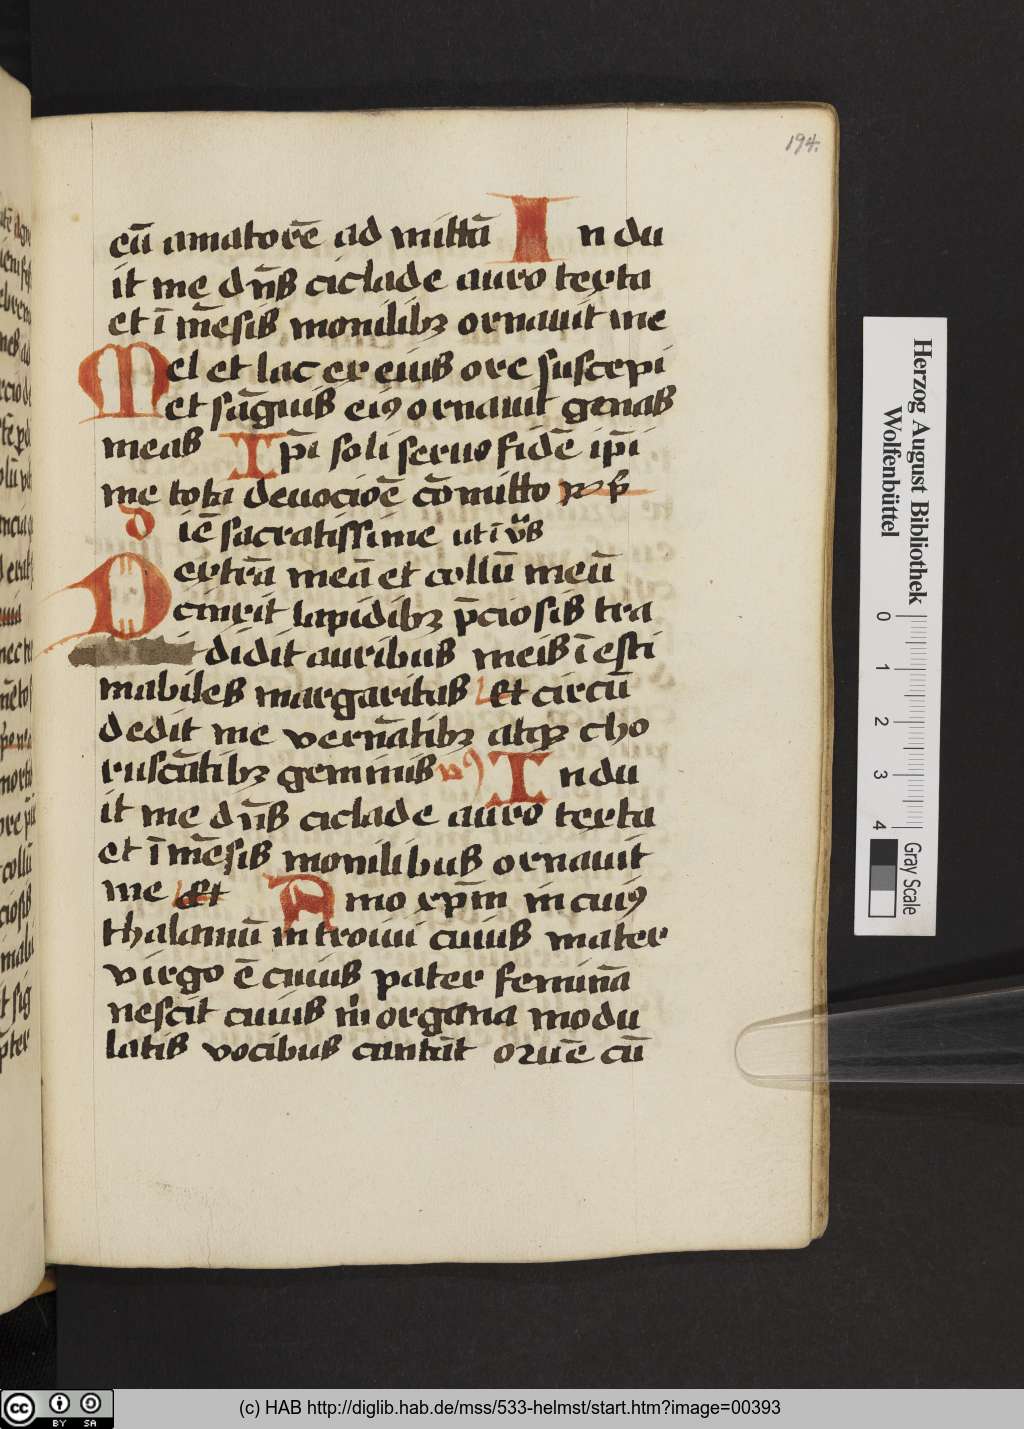 194.
eū amatorē ad mittā In du
it me dn̄s ciclade auro texta
et ī mēsis monilibꝫ ornauit me
Mel et lac ex eius ore suscepi
et sāguis eiꝰ ornauit genas
meas Ip̄i soli seruo fidē ip̄i
me tota deuocioē cōmitto
diē sacratissime ut ī
Dextrā meā et collū meū
cinxit lapidibꝫ p̄ciosis tra
didit auribus meis ī esti
mabiles margaritas Et circū
dedit me vernātibꝫ atqꝫ cho
ruscātibꝫ gemmis In du
it me dn̄s ciclade auro texta
et ī mēsis monilibus ornauit
me Et Amo xp̄m in cuiꝰ
thalamū introiui cuius mater
virgo ē cuius pater feminā
nescit cuius m̄ organa modu
latis vocibus cantāt quē cū
Herzog August Bibliothek
Wolfenbüttel
0 1 2 3 4
Gray Scale
cc BY SA
(c) HAB http://diglib.hab.de/mss/533-helmst/start.htm?image=00393